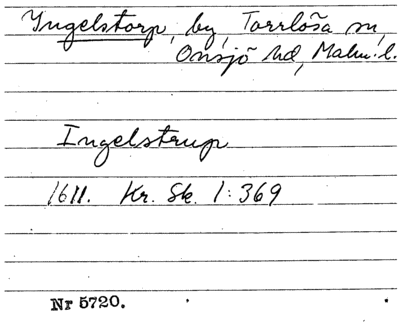 Yngelstorp, by, Torrlösa sn,
Onsjö hd, Malm. l.
Ingelstrup
1611. Kr. Sk. 1:369
Nr 5720.